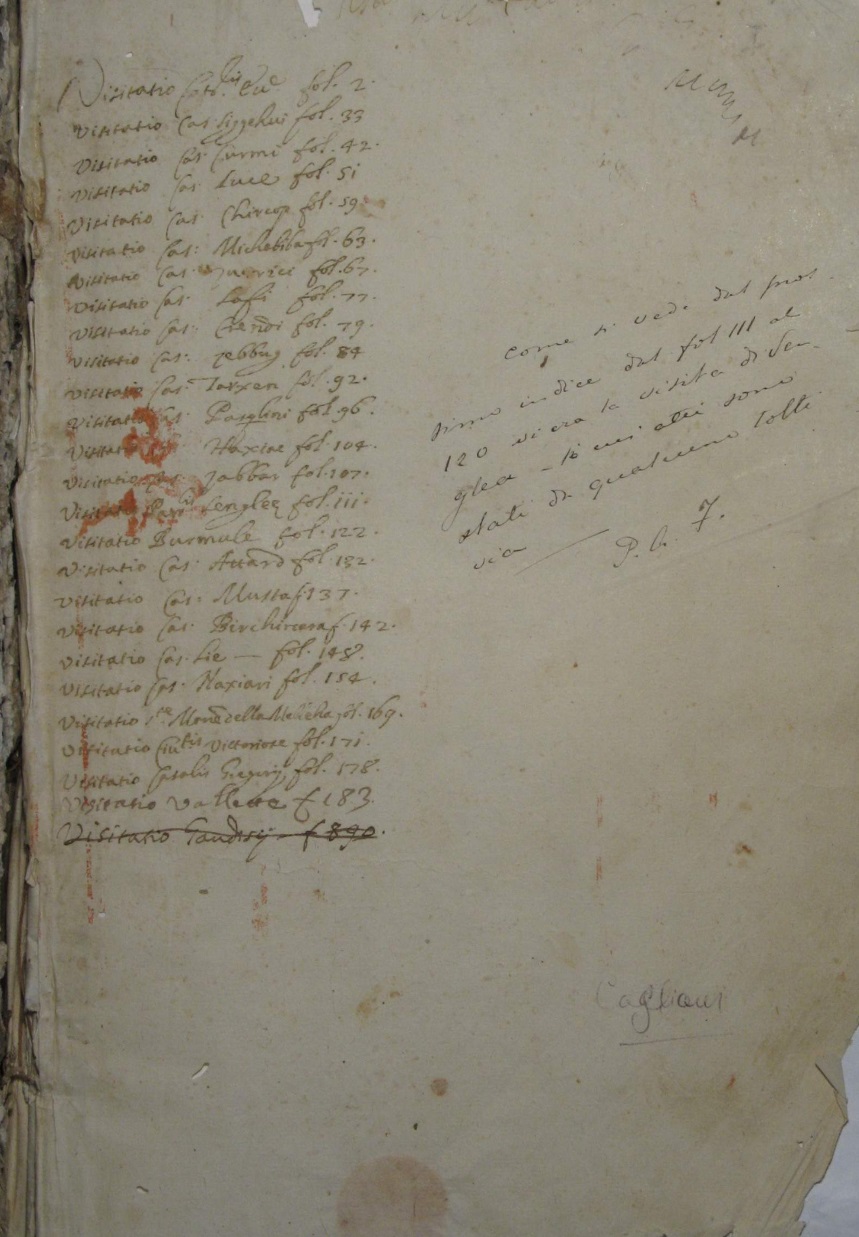 Visitatio fol. 2.
Visitatio Cas. Siggehui fol. 33
Visitatio Cas. Curmi fol. 42.
Visitatio Cas. Luce fol. 51
Visitatio Cas. Chircop fol. 59.
Visitatio Cas: fol. 63.
Visitatio Cas. fol. 67.
Visitatio Cas. Safi fol. 77.
Visitatio Cas: Crendi fol. 79.
Visitatio Cas: Zebbug fol. 84
Visitatio Cas: Tarxen fol. 92.
Visitatio Cas: Pasqlini fol. 96.
Visitatio Cas: Haxiac fol. 104.
Visitatio Cas: Zabbar fol. 107.
Visitatio Senglee fol. 111.
Visitatio Burmule fol. 122.
Visitatio Cas: Attard fol. 132.
Visitatio Cas: Musta f. 137.
Visitatio Cas. Birchircara f. 142.
Visitatio Cas. Lie — fol. 148.
Visitatio Cas. Naxiari fol. 154.
Visitatio della Melleha fol. 169.
Visitatio Ciutis Vittoriose fol. 171.
Visitatio Casalis Gregorij fol. 178.
Visitatio Vallette f. 183.
Visitatio Gaudisij f 890.
come si vede dal pros-
simo indice dal fol 111 al
120 vi era la visita di Sen-
glea — i cui atti sono
stati da qualcuno tolti
via — P. b. 7.